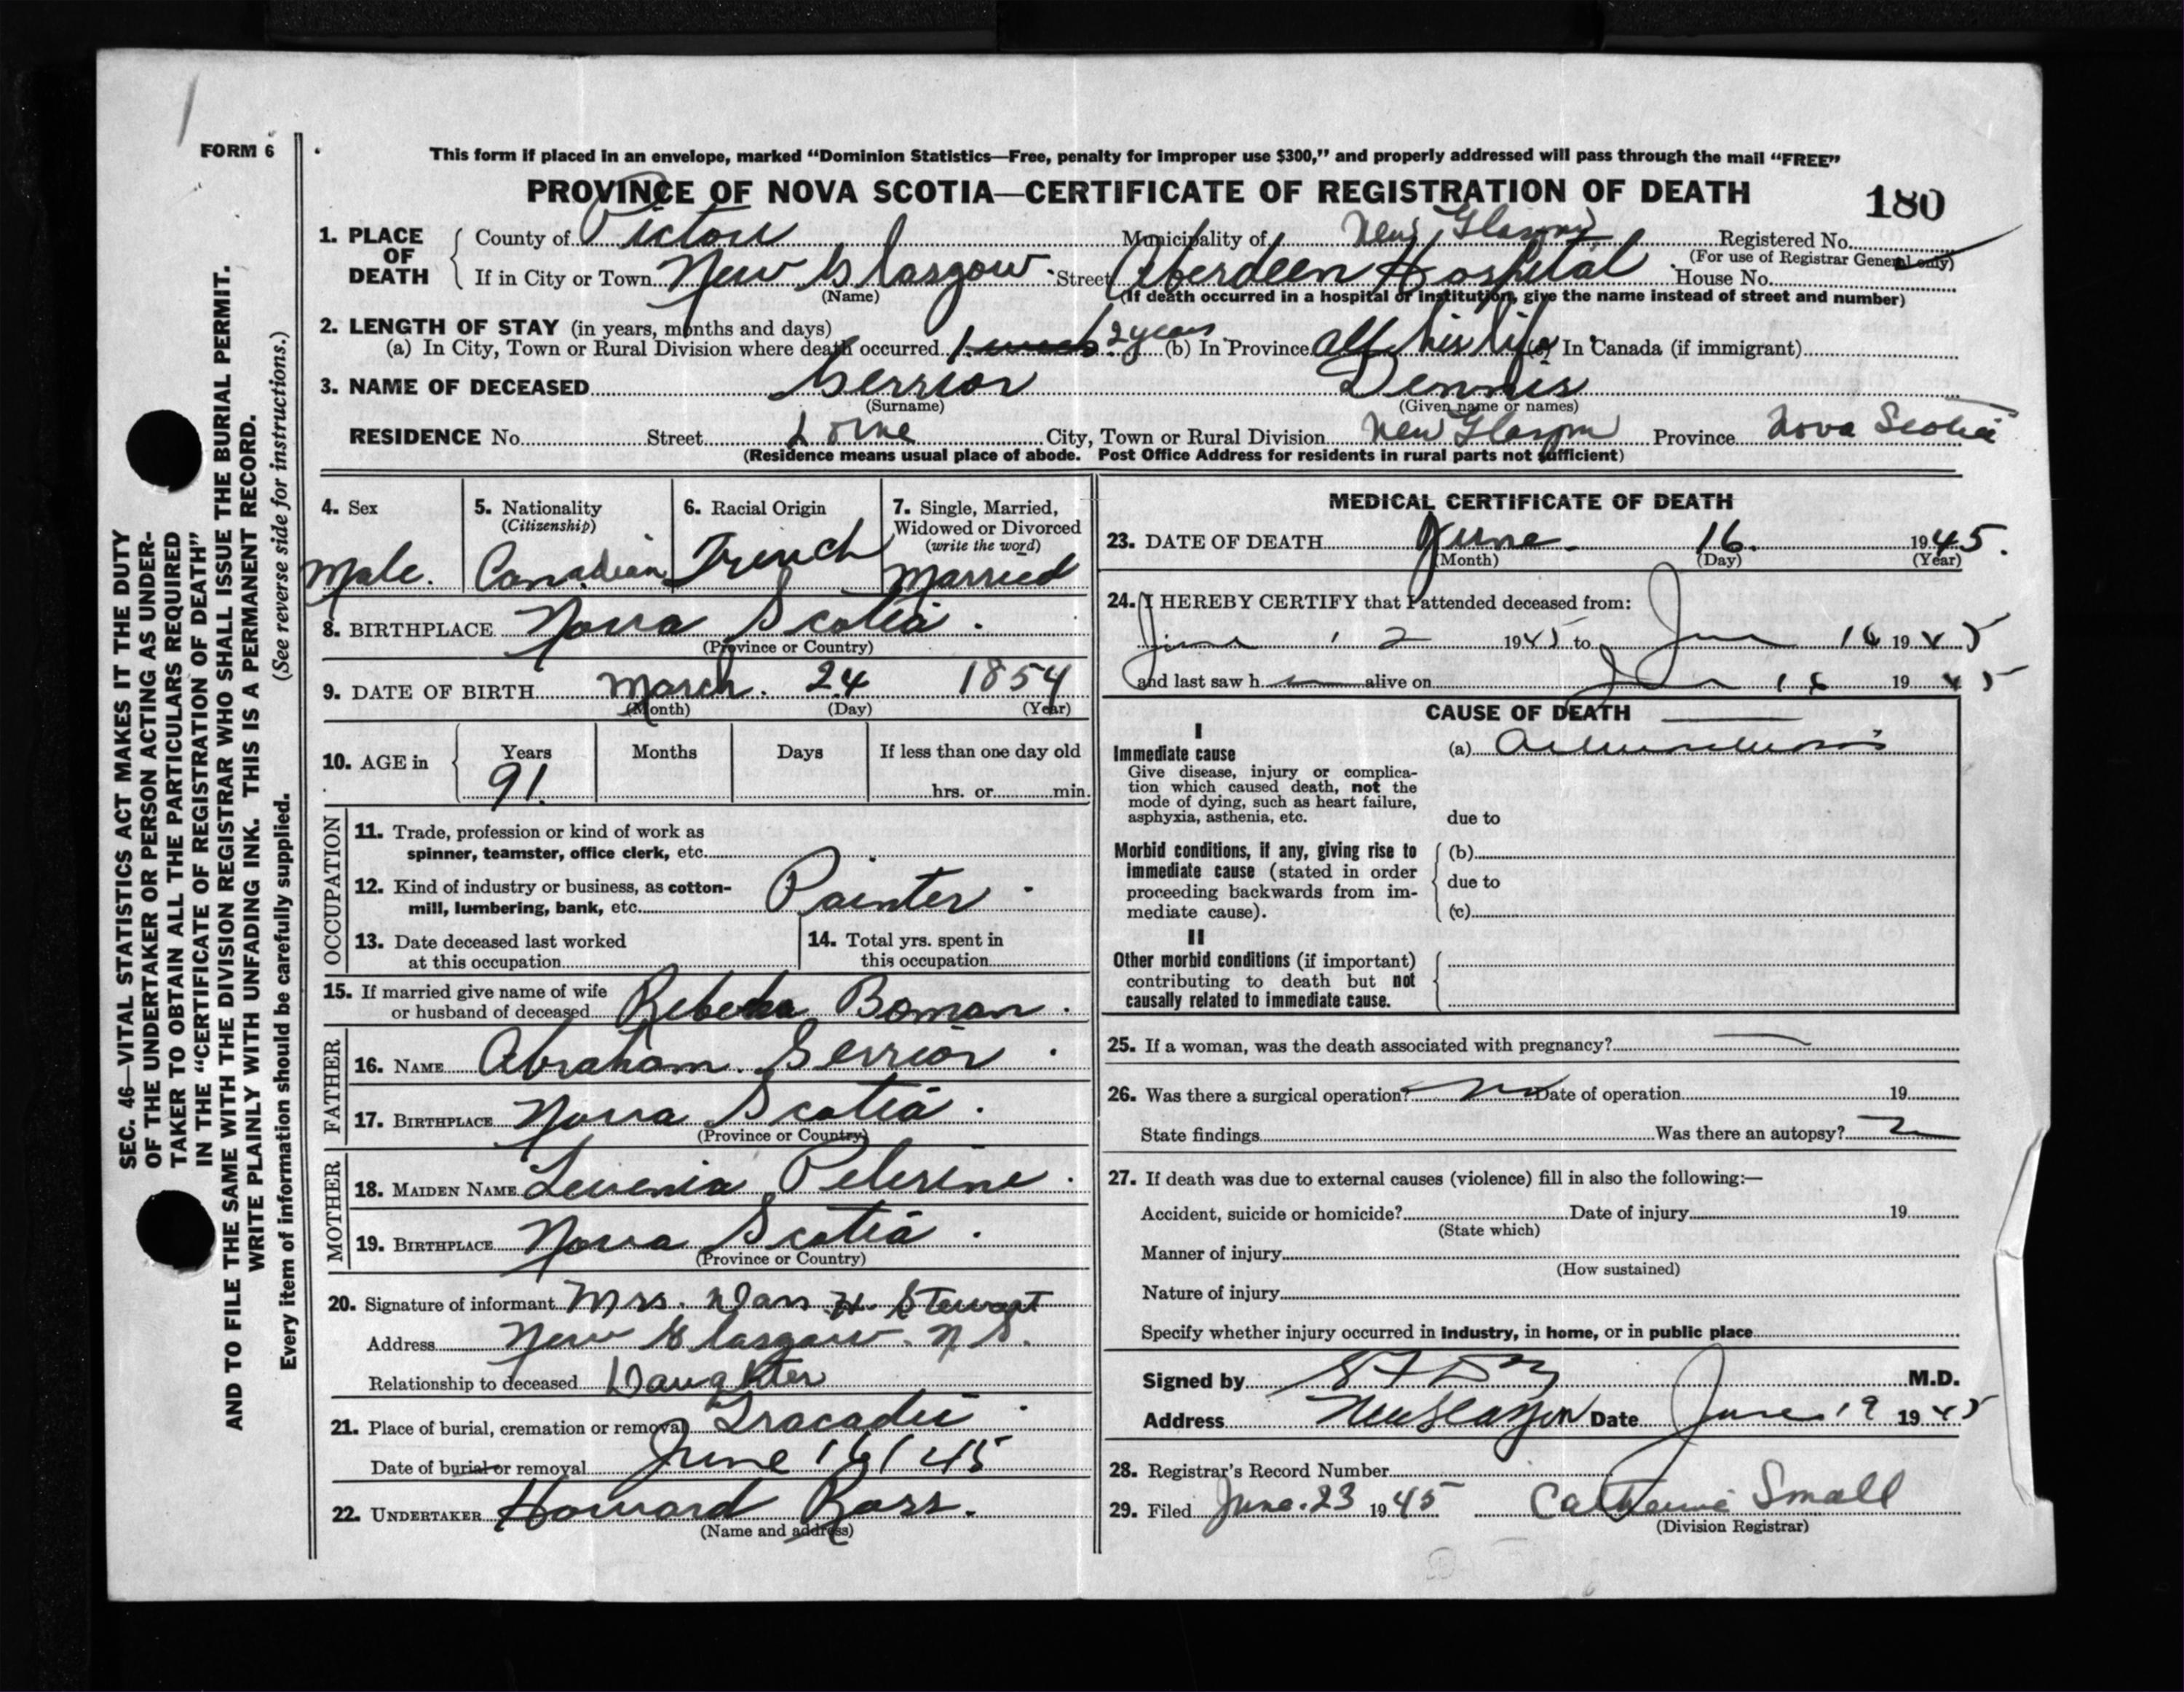 FORM 6
This form if placed in an envelope, marked "Dominion Statistics—Free, penalty for improper use $300," and properly addressed will pass through the mail "FREE"
PROVINCE OF NOVA SCOTIA—CERTIFICATE OF REGISTRATION OF DEATH
180
1. PLACE OF DEATH
County of Pictou Municipality of New Glasgow Registered No.
(For use of Registrar General only)
If in City or Town New Glasgow Street Aberdeen Hospital House No.
(Name) (If death occurred in a hospital or institution, give the name instead of street and number)
2. LENGTH OF STAY (in years, months and days)
(a) In City, Town or Rural Division where death occurred 1 week 2 years (b) In Province All his life (c) In Canada (if immigrant)
3. NAME OF DECEASED Gerrior Dennis
(Surname) (Given name or names)
RESIDENCE No. Street Lorne City, Town or Rural Division New Glasgow Province Nova Scotia
(Residence means usual place of abode. Post Office Address for residents in rural parts not sufficient)
4. Sex
Male.
5. Nationality
(Citizenship)
Canadian
6. Racial Origin
French
7. Single, Married,
Widowed or Divorced
(write the word)
Married
8. BIRTHPLACE Nova Scotia.
(Province or Country)
9. DATE OF BIRTH March. 24 1854
(Month) (Day) (Year)
10. AGE in Years Months Days If less than one day old
91. hrs. or min.
OCCUPATION
11. Trade, profession or kind of work as
spinner, teamster, office clerk, etc.
12. Kind of industry or business, as cotton-
mill, lumbering, bank, etc. Painter.
13. Date deceased last worked
at this occupation
14. Total yrs. spent in
this occupation
15. If married give name of wife
or husband of deceased Rebecca Boman.
FATHER
16. NAME Abraham Gerrior.
17. BIRTHPLACE Nova Scotia.
(Province or Country)
MOTHER
18. MAIDEN NAME Levenia Pelerine.
19. BIRTHPLACE Nova Scotia.
(Province or Country)
20. Signature of informant Mrs. Dan H. Stewart
Address New Glasgow. N.S.
Relationship to deceased Daughter
21. Place of burial, cremation or removal Tracadie.
Date of burial or removal June 16/45
22. UNDERTAKER Howard Ross.
(Name and address)
MEDICAL CERTIFICATE OF DEATH
23. DATE OF DEATH June 16. 1945.
(Month) (Day) (Year)
24. I HEREBY CERTIFY that I attended deceased from:
June 12 1945 to June 16 1945
and last saw h alive on 16 1945
CAUSE OF DEATH
I
Immediate cause
Give disease, injury or complica-
tion which caused death, not the
mode of dying, such as heart failure,
asphyxia, asthenia, etc.
(a)
due to
Morbid conditions, if any, giving rise to
immediate cause (stated in order
proceeding backwards from im-
mediate cause).
(b)
due to
(c)
II
Other morbid conditions (if important)
contributing to death but not
causally related to immediate cause.
25. If a woman, was the death associated with pregnancy?
26. Was there a surgical operation? No Date of operation 19
State findings Was there an autopsy?
27. If death was due to external causes (violence) fill in also the following:—
Accident, suicide or homicide? Date of injury 19
(State which)
Manner of injury
(How sustained)
Nature of injury
Specify whether injury occurred in industry, in home, or in public place
Signed by M.D.
Address New Glasgow Date June 19 1945
28. Registrar's Record Number
29. Filed June. 23 1945 Catherine Small
(Division Registrar)
SEC. 46—VITAL STATISTICS ACT MAKES IT THE DUTY
OF THE UNDERTAKER OR PERSON ACTING AS UNDER-
TAKER TO OBTAIN ALL THE PARTICULARS REQUIRED
IN THE "CERTIFICATE OF REGISTRATION OF DEATH"
AND TO FILE THE SAME WITH THE DIVISION REGISTRAR WHO SHALL ISSUE THE BURIAL PERMIT.
WRITE PLAINLY WITH UNFADING INK. THIS IS A PERMANENT RECORD.
Every item of information should be carefully supplied. (See reverse side for instructions.)